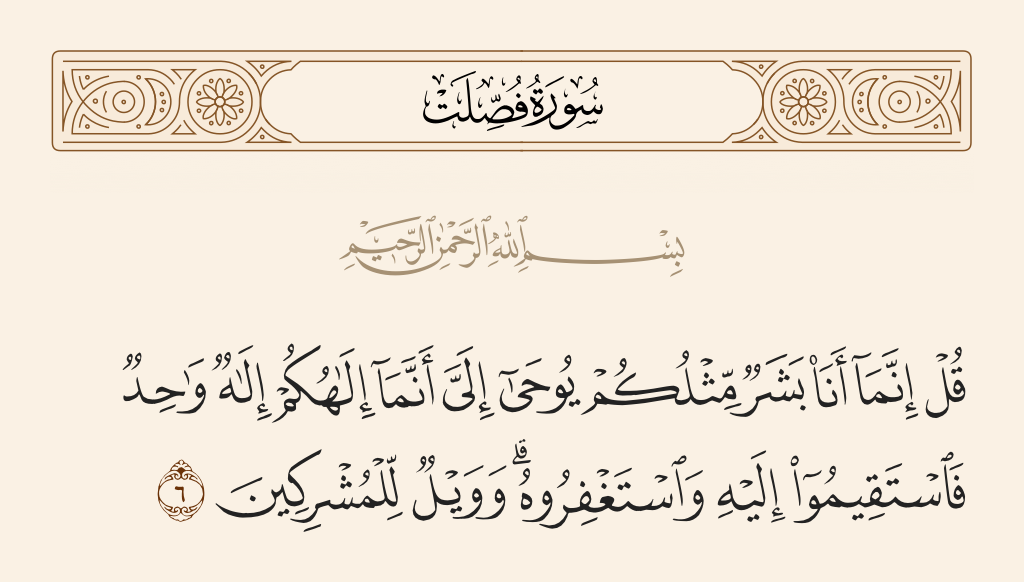 سُورَةُ فُصِّلَتْ
بِسْمِ ٱللَّهِ ٱلرَّحْمَٰنِ ٱلرَّحِيمِ
قُلْ إِنَّمَآ أَنَا۠ بَشَرٌ مِّثْلُكُمْ يُوحَىٰٓ إِلَىَّ أَنَّمَآ إِلَٰهُكُمْ إِلَٰهٌ وَٰحِدٌ
فَٱسْتَقِيمُوٓا۟ إِلَيْهِ وَٱسْتَغْفِرُوهُ ۗ وَوَيْلٌ لِّلْمُشْرِكِينَ ٦